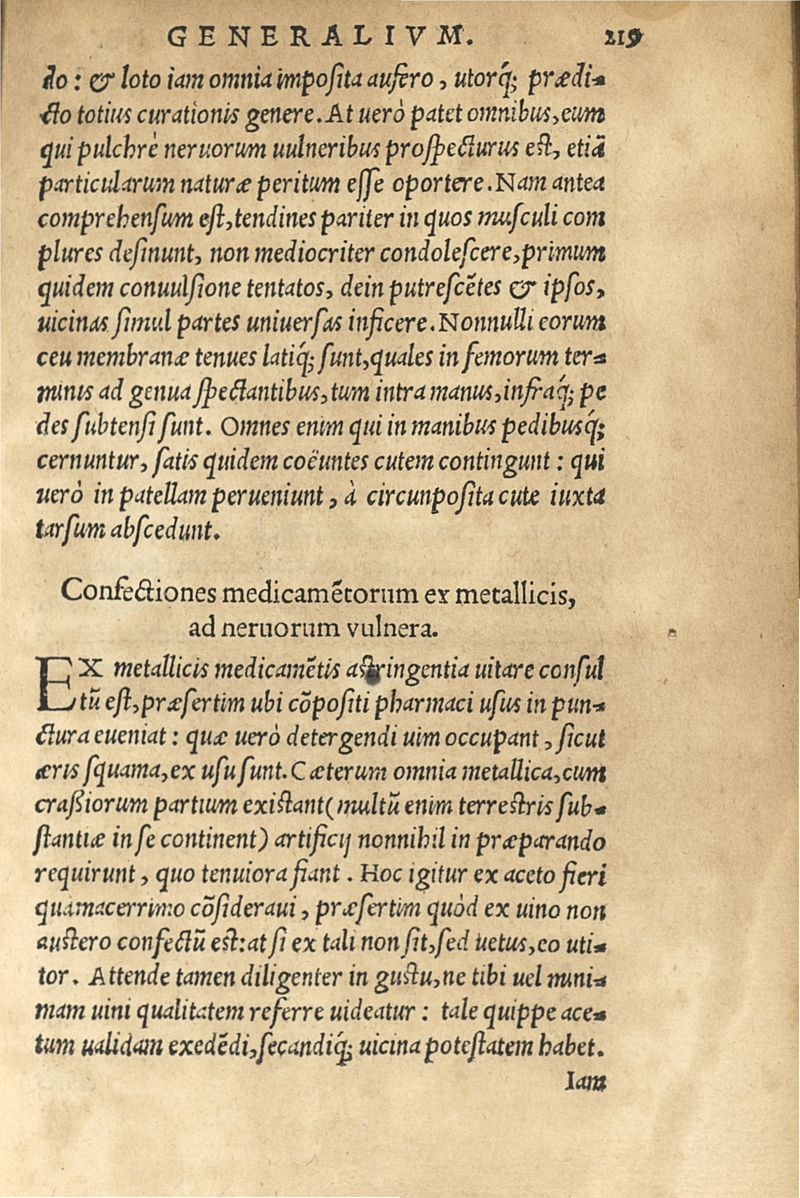 GENERALIVM. 219
do: & loto iam omnia imposita aufero, utorq́; prædi-
cto totius curationis genere. At uerò patet omnibus, eum
qui pulchrè neruorum uulneribus prospecturus est, etiã
particularum naturæ peritum esse oportere. Nam antea
comprehensum est, tendines pariter in quos musculi com
plures desinunt, non mediocriter condolescere, primum
quidem conuulsione tentatos, dein putrescẽtes & ipsos,
uicinas simul partes uniuersas inficere. Nonnulli eorum
ceu membranæ tenues latiq́; sunt, quales in femorum ter-
minis ad genua spectantibus, tum intra manus, infraq́; pe
des subtensi sunt. Omnes enim qui in manibus pedibusq́;
cernuntur, satis quidem coëuntes cutem contingunt: qui
uerò in patellam perueniunt, à circunposita cute iuxta
tarsum abscedunt.
Confectiones medicamẽtorum ex metallicis,
ad neruorum vulnera.
EX metallicis medicamẽtis astringentia uitare consul
tũ est, præsertim ubi cõpositi pharmaci usus in pun-
ctura eueniat: quæ uerò detergendi uim occupant, sicut
æris squama, ex usu sunt. Cæterum omnia metallica, cum
craßiorum partium existant (multũ enim terrestris sub-
stantiæ in se continent) artificij nonnihil in præparando
requirunt, quo tenuiora fiant. Hoc igitur ex aceto fieri
quamacerrimo cõsideraui, præsertim quòd ex uino non
austero confectũ est: at si ex tali non sit, sed uetus, eo uti-
tor. Attende tamen diligenter in gustu, ne tibi uel mini-
mam uini qualitatem referre uideatur: tale quippe ace-
tum ualidam exedẽdi, secandiq́; uicina potestatem habet.
Iam